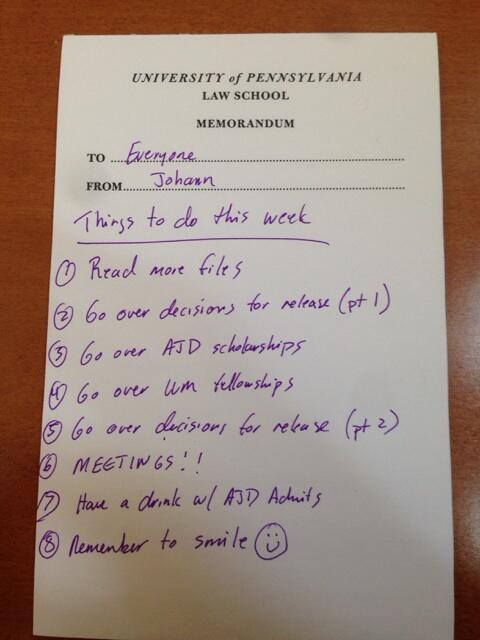 UNIVERSITY of PENNSYLVANIA
LAW SCHOOL
MEMORANDUM
TO Everyone
FROM Johann
Things to do this week
① Read more files
② Go over decisions for release (pt 1)
③ Go over AJD scholarships
④ Go over LLM fellowships
⑤ Go over decisions for release (pt 2)
⑥ MEETINGS!!
⑦ Have a drink w/ AJD Admits
⑧ Remember to smile ☺